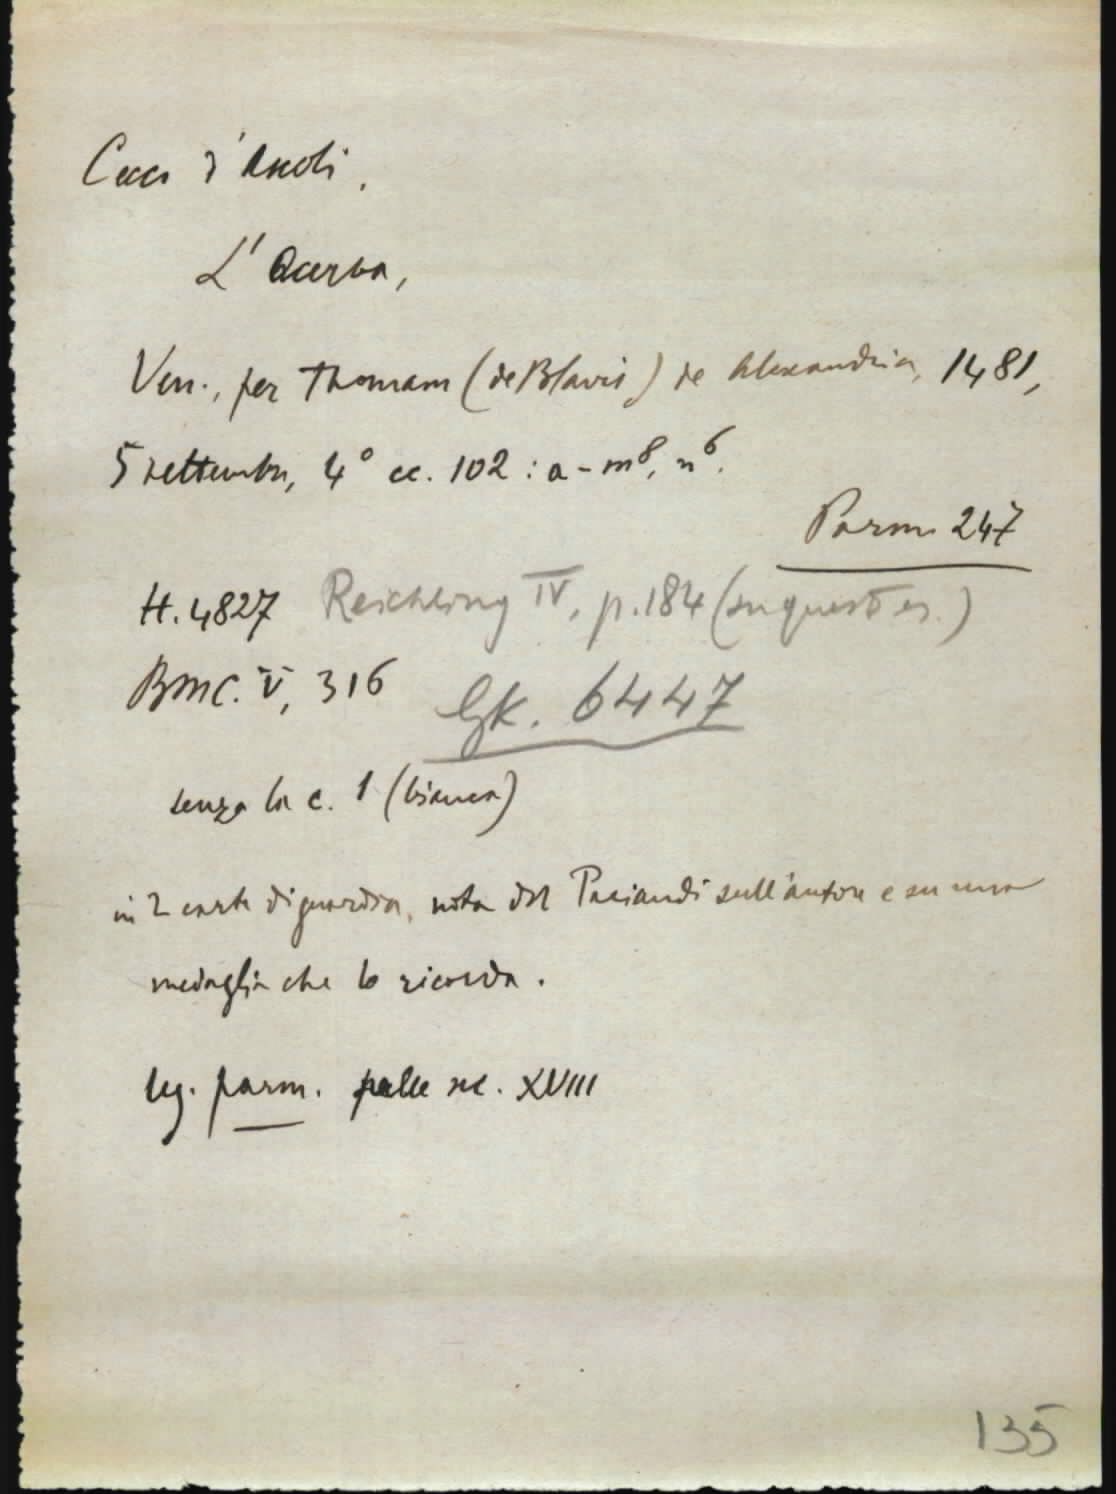 Cecco d'Ascoli,
L'Acerba,
Ven., per Thomam (de Blavis) de Alexandria, 1481,
5 settembre, 4° cc. 102 : a-m⁸, n⁶.
Parm 247
H. 4827 Reichling IV, p. 184 (su questo es.)
BMC. V, 316 Gk. 6447
senza la c. 1 (bianca)
in 2 carte di guardia, nota del Paciaudi sull'autore e su una
medaglia che lo ricorda.
leg. parm. pelle sec. XVIII
135